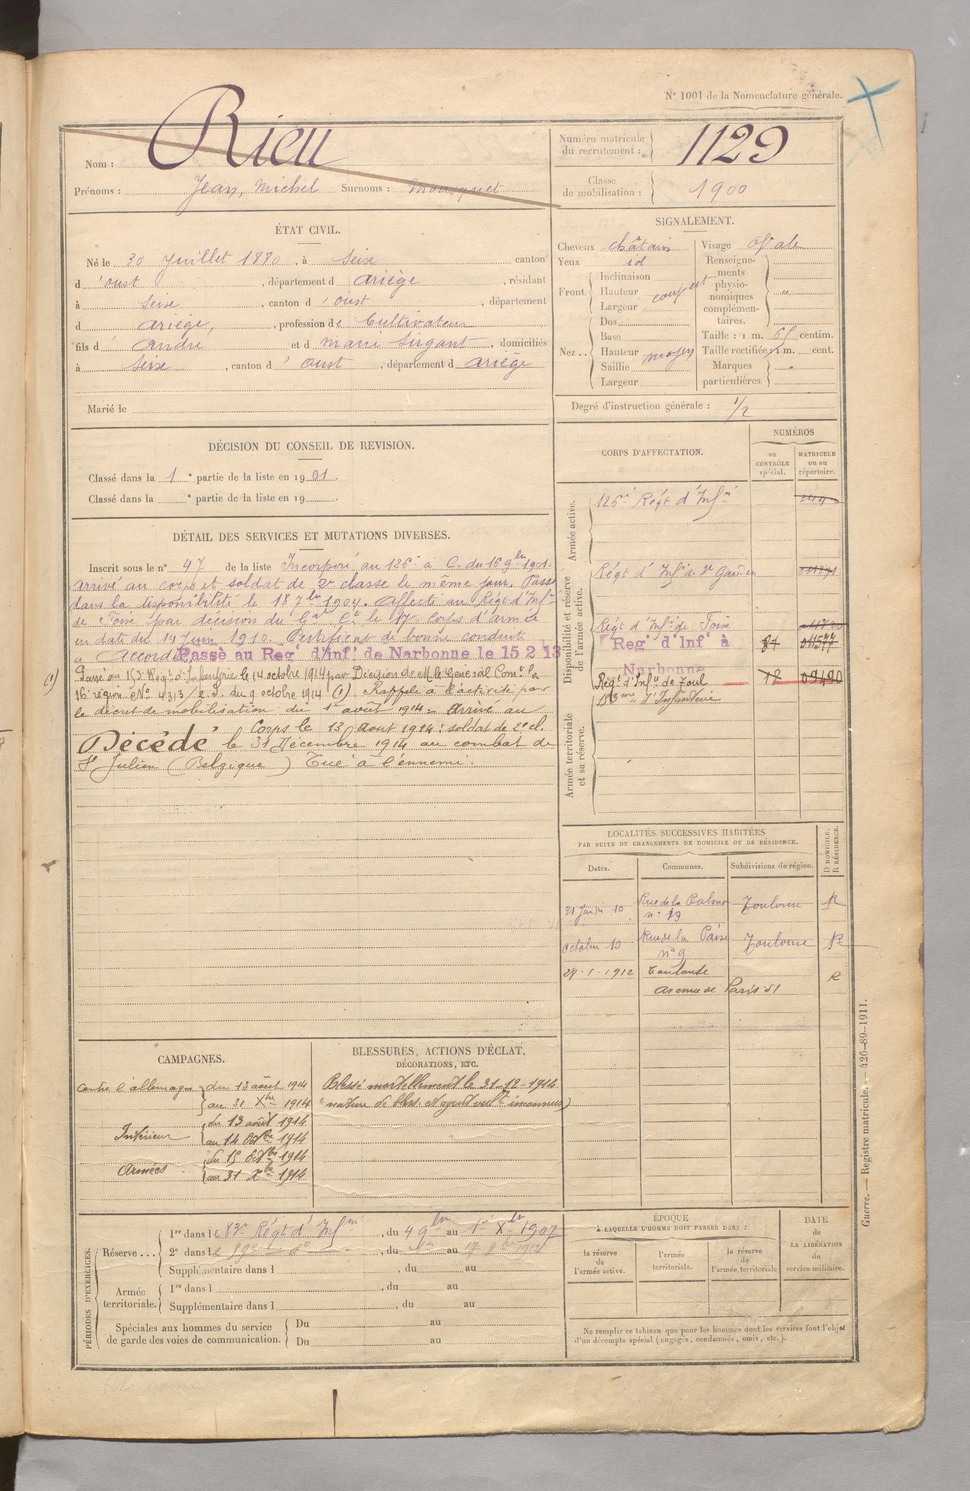 N° 1001 de la Nomenclature générale.
Nom : Rieu
Prénoms : Jean, Michel Surnoms : Mousquet
Numéro matricule du recrutement : 1129
Classe de mobilisation : 1900
ÉTAT CIVIL.
Né le 30 Juillet 1880, à Seix canton
d'Oust, département d Ariège, résidant
à Seix, canton d'Oust, département
d Ariège, profession de Cultivateur
fils d' André et d Marie Sirgant, domiciliés
à Seix, canton d' Oust, département d Ariège
Marié le
SIGNALEMENT.
Cheveux châtain
Yeux id
Front. Inclinaison
Hauteur
Largeur
Nez.. Dos
Base
Hauteur moyen
Saillie
Largeur
Visage ovale
Renseignements physionomiques complémentaires. "
Taille : 1 m. 65 centim.
Taille rectifiée 1 m. cent.
Marques particulières. "
Degré d'instruction générale : 1/2
DÉCISION DU CONSEIL DE REVISION.
Classé dans la 1e partie de la liste en 1901.
Classé dans la e partie de la liste en 19
DÉTAIL DES SERVICES ET MUTATIONS DIVERSES.
Inscrit sous le n° 47 de la liste Incorporé au 126e à C. du 16 9bre 1901.
Arrivé au corps et soldat de 2e classe le même jour. Passé
dans la disponibilité le 18 7bre 1904. Affecté au Régt d'Infie
de Foix par décision du Gal Ct le 17e Corps d'armée
en date du 14 Juin 1910. Certificat de bonne conduite
Accordé Passé au Reg' d'Inf' de Narbonne le 15 2 13
Passé au Régt d'Infanterie le 14 octobre 1914 par Décision de M. le Général Comt la
16e région N° 4313/2.S. du 9 octobre 1914 (1) Rappelé à l'activité par
le décret de mobilisation du 1er août 1914. Arrivé au
Corps le 13 Août 1914; soldat de 2e cl.
Décédé le 31 Décembre 1914 au combat de
St Julien (Belgique) Tué à l'ennemi.
(1)
CORPS D'AFFECTATION.
NUMÉROS
au CONTRÔLE spécial.
MATRICULE ou au répertoire.
Armée active.
126e Régt d'Infie
Disponibilité et réserve de l'armée active.
Régt d'Infie de St Gaudens
Régt d'Infie de Foix
Reg' d'Inf' à Narbonne 87
Régt d'Infie de Toul 12
d'Infanterie
Armée territoriale et sa réserve.
LOCALITÉS SUCCESSIVES HABITÉES
PAR SUITE DE CHANGEMENTS DE DOMICILE OU DE RÉSIDENCE.
Dates. Communes. Subdivisions de région. D. DOMICILE. R. RÉSIDENCE.
10 Rue de la n° 19 Toulouse R
octobre 10 Rue de la n° 9 Toulouse R
29-1-1912 Toulouse avenue de Paris 51 R
CAMPAGNES.
Contre l'allemagne du 13 août 1914
au 31 Xbre 1914
Intérieur du 13 août 1914
au 14 octbre 1914
Armées du 15 octbre 1914
au 31 Xbre 1914
BLESSURES, ACTIONS D'ÉCLAT,
DÉCORATIONS, ETC.
Blessé mortellement le 31-12-1914
(nature de bless. et agent vulnt inconnus)
PÉRIODES D'EXERCICES.
Réserve ... 1re dans le 83e Régt d'Infie, du 4 9bre au 1er Xbre 1907
2e dans le, du au
Supplémentaire dans l, du au
Armée territoriale. 1re dans l, du au
Supplémentaire dans l, du au
Spéciales aux hommes du service de garde des voies de communication. Du au
Du au
ÉPOQUE
À LAQUELLE L'HOMME DOIT PASSER DANS :
la réserve de l'armée active.
l'armée territoriale.
la réserve de l'armée territoriale
DATE de LA LIBÉRATION du service militaire.
Ne remplir ce tableau que pour les hommes dont les services font l'objet
d'un décompte spécial (engagés, condamnés, omis, etc.).
Guerre. — Registre matricule. — 426-89-1911.